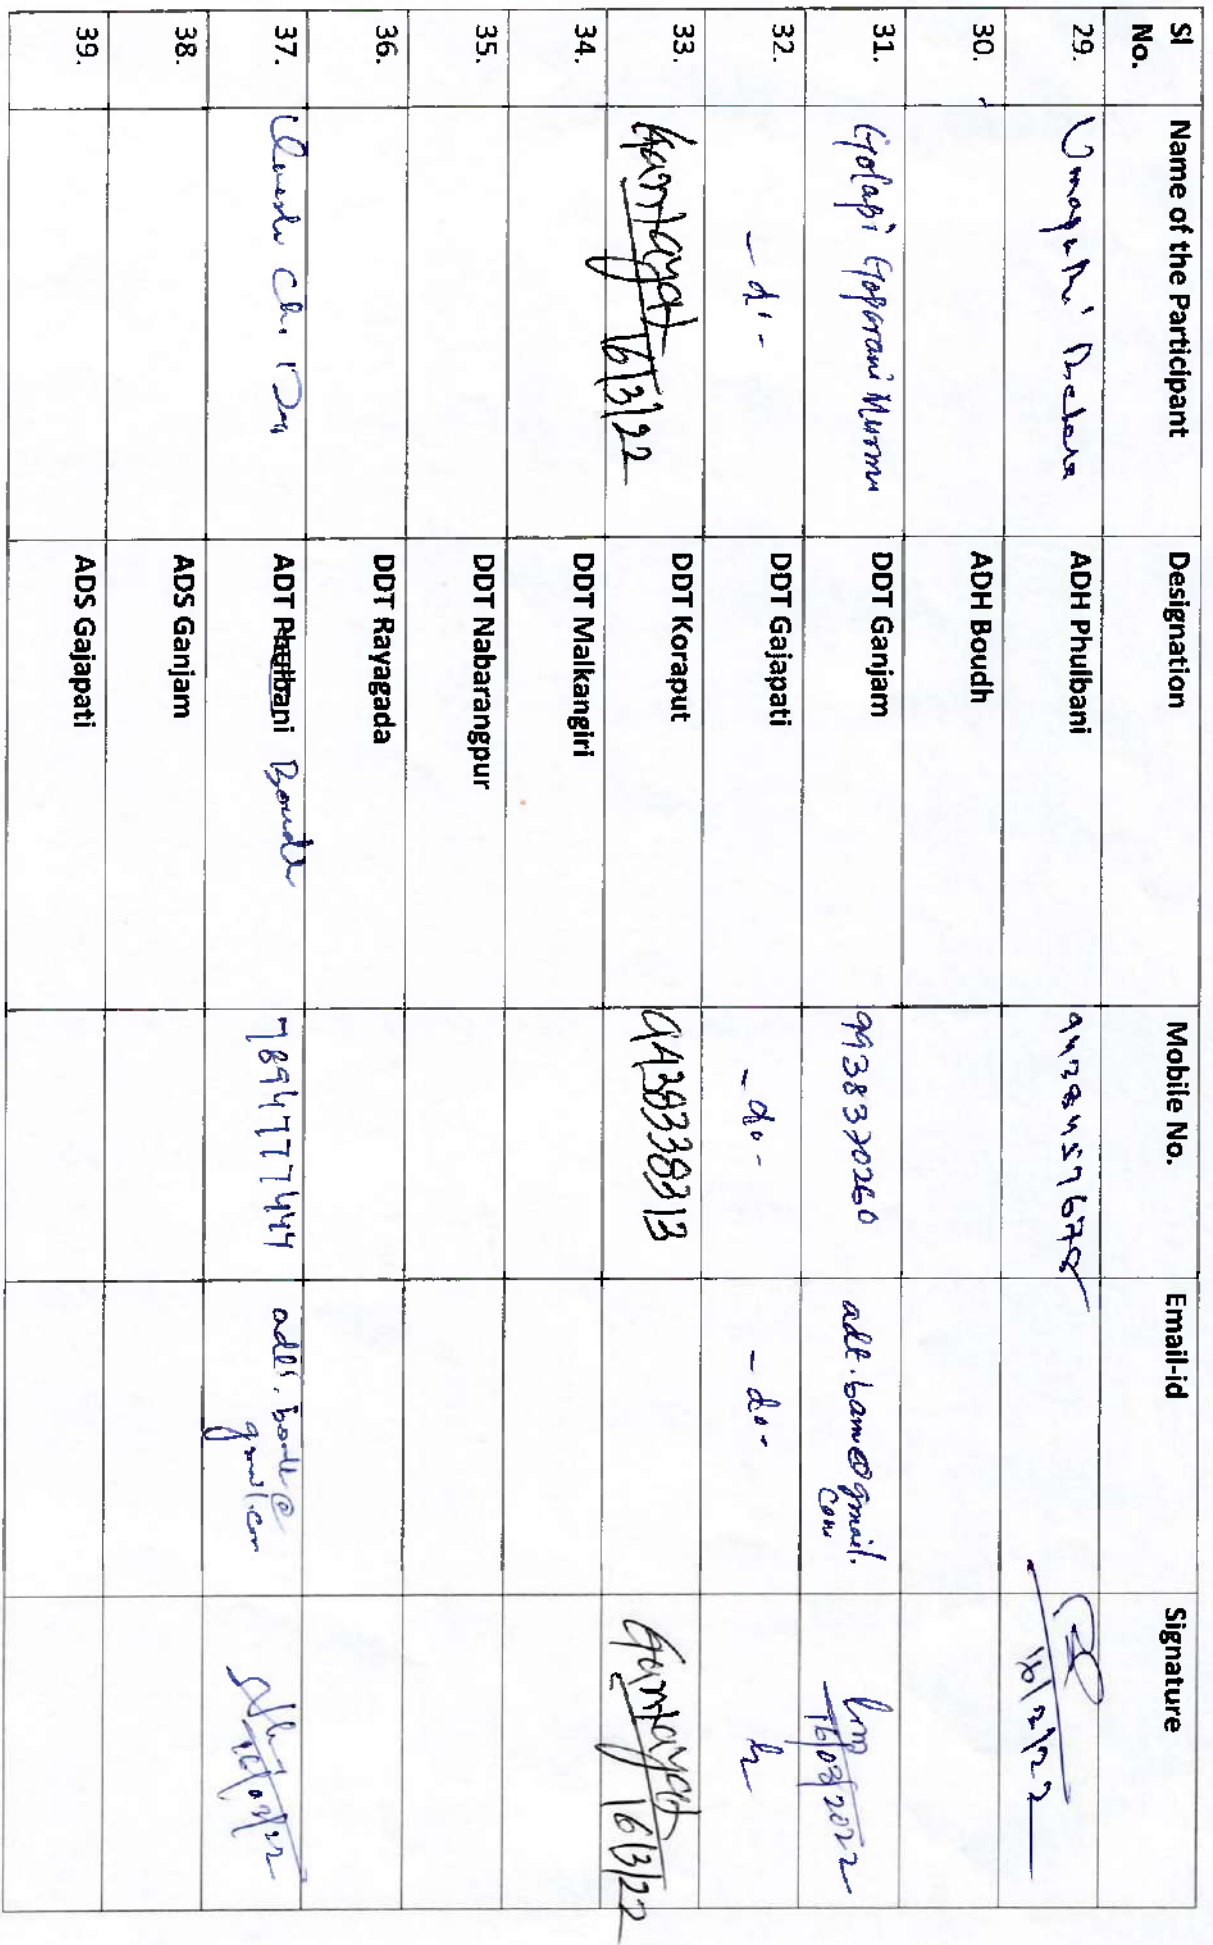 Sl No. Name of the Participant Designation Mobile No. Email-id Signature
29. ADH Phulbani 9438457678 16/3/22
30. ADH Boudh
31. Golapi Goparani Murmu DDT Ganjam 9938370260 adt.bam@gmail.com 16/03/2022
32. - do - DDT Gajapati - do - - do -
33. 16/3/22 DDT Koraput 9438338213 16/3/22
34. DDT Malkangiri
35. DDT Nabarangpur
36. DDT Rayagada
37. Umesh Ch. Das ADT Phulbani Boudh 7894777444 16/03/22
38. ADS Ganjam
39. ADS Gajapati